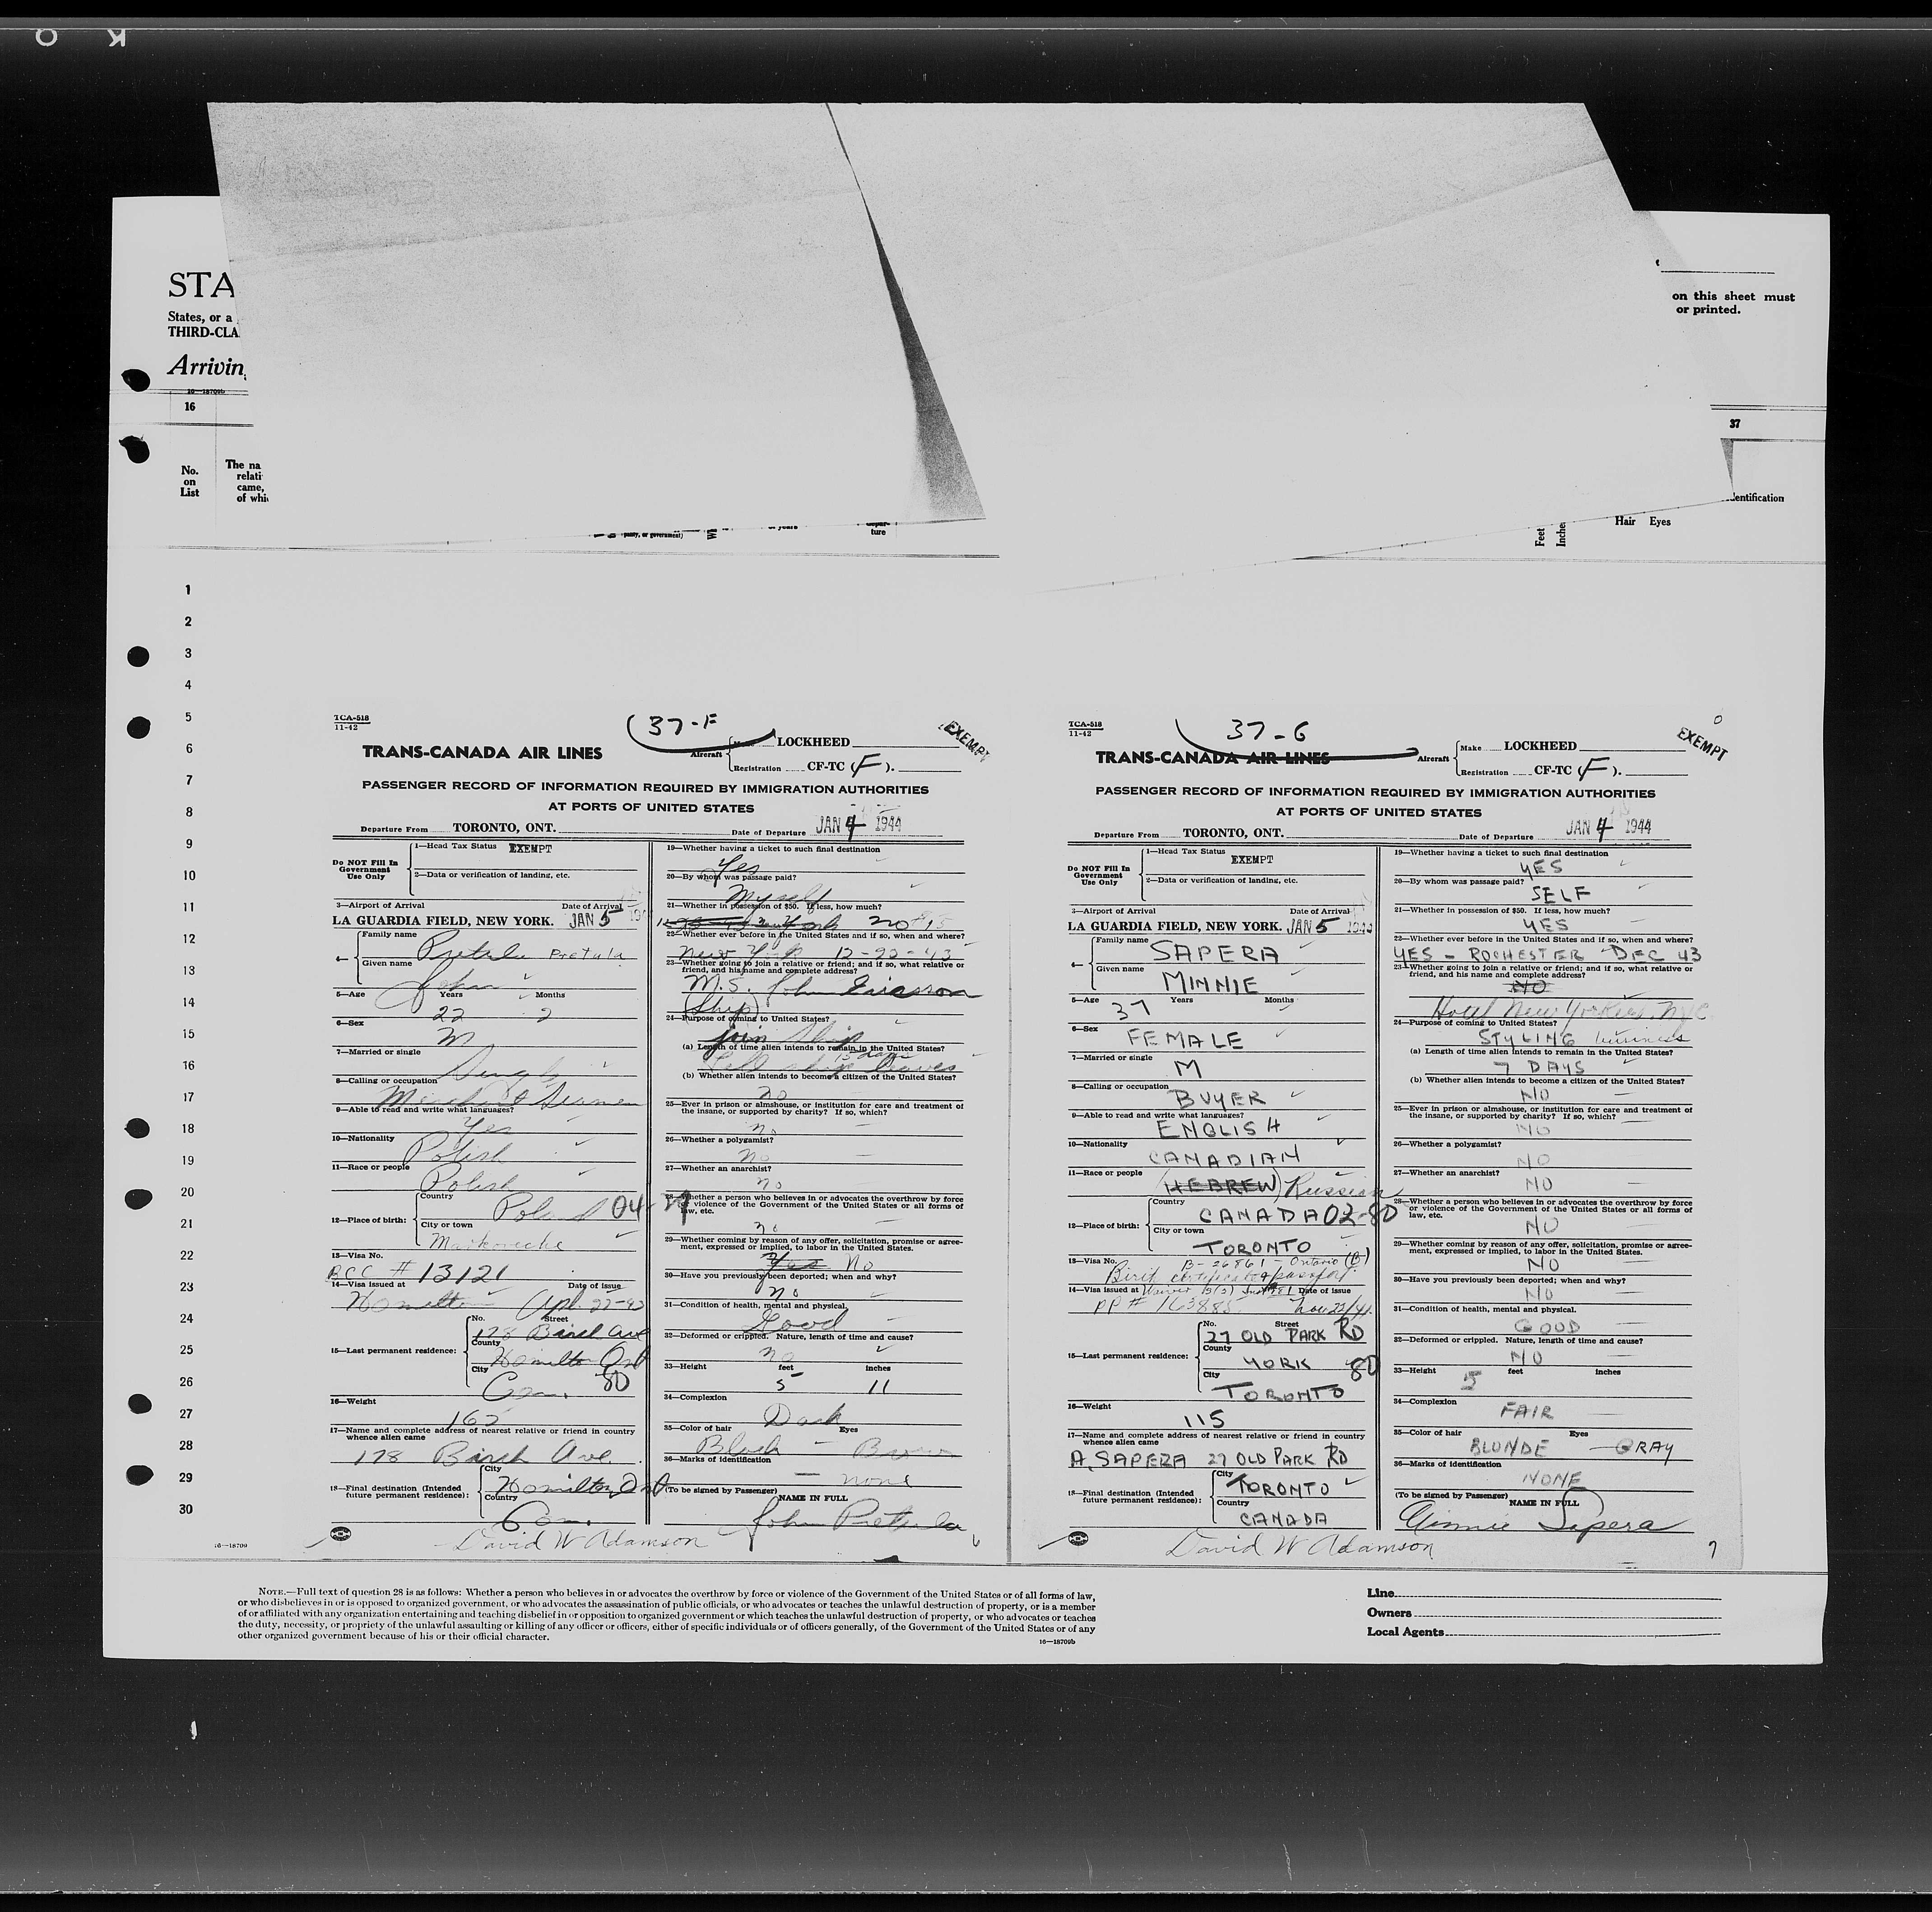 O K
STA
States, or a
THIRD-CLA
Arrivin
16—18709b
16
No.
on
List
The na
relati
came,
of whi
pany, or government)
ture
on this sheet must
or printed.
37
entification
Feet
Inche
Hair Eyes
1
2
3
4
5
6
7
8
9
10
11
12
13
14
15
16
17
18
19
20
21
22
23
24
25
26
27
28
29
30
16—18709
TCA-518
11-42
37-F
EXEMPT
TRANS-CANADA AIR LINES
Aircraft
Make LOCKHEED
Registration CF-TC (F).
PASSENGER RECORD OF INFORMATION REQUIRED BY IMMIGRATION AUTHORITIES
AT PORTS OF UNITED STATES
Departure From TORONTO, ONT. Date of Departure JAN 4 1944
Do NOT Fill In
Government
Use Only
1—Head Tax Status EXEMPT
2—Data or verification of landing, etc.
3—Airport of Arrival Date of Arrival
LA GUARDIA FIELD, NEW YORK. JAN 5
4— Family name Pretula Pretula
Given name John
5—Age Years Months
22 2
6—Sex
M
7—Married or single
Single
8—Calling or occupation
Merchant Seamen
9—Able to read and write what languages?
Yes
10—Nationality
Polish
11—Race or people
Polish
12—Place of birth: Country Poland 04-
City or town
13—Visa No.
# 13121
14—Visa issued at Date of issue
Hamilton Apl 27-42
15—Last permanent residence: No. Street
178 Birch Ave
County
Hamilton Ont
City
Can. 80
16—Weight
162
17—Name and complete address of nearest relative or friend in country
whence alien came
178 Birch Ave
18—Final destination (Intended
future permanent residence):
City
Hamilton, Ont
Country
Can.
David W Adamson
19—Whether having a ticket to such final destination
Yes
20—By whom was passage paid?
Myself
21—Whether in possession of $50. If less, how much?
20
22—Whether ever before in the United States and if so, when and where?
New York 12-22-43
23—Whether going to join a relative or friend; and if so, what relative or
friend, and his name and complete address?
M.S. John Ericsson
(Ship)
24—Purpose of coming to United States?
join Ship
(a) Length of time alien intends to remain in the United States?
15 days
till ship leaves
(b) Whether alien intends to become a citizen of the United States?
no
25—Ever in prison or almshouse, or institution for care and treatment of
the insane, or supported by charity? If so, which?
no
26—Whether a polygamist?
no
27—Whether an anarchist?
no
28—Whether a person who believes in or advocates the overthrow by force
or violence of the Government of the United States or all forms of
law, etc.
no
29—Whether coming by reason of any offer, solicitation, promise or agree-
ment, expressed or implied, to labor in the United States.
Yes No
30—Have you previously been deported; when and why?
no
31—Condition of health, mental and physical.
Good
32—Deformed or crippled. Nature, length of time and cause?
no
33—Height feet inches
5 11
34—Complexion
Dark
35—Color of hair Eyes
Black - Brown
36—Marks of identification
none
(To be signed by Passenger) NAME IN FULL
John Pretula
6
TCA-518
11-42
37-G
EXEMPT
TRANS-CANADA AIR LINES
Aircraft
Make LOCKHEED
Registration CF-TC (F).
PASSENGER RECORD OF INFORMATION REQUIRED BY IMMIGRATION AUTHORITIES
AT PORTS OF UNITED STATES
Departure From TORONTO, ONT. Date of Departure JAN 4 1944
Do NOT Fill In
Government
Use Only
1—Head Tax Status
EXEMPT
2—Data or verification of landing, etc.
3—Airport of Arrival Date of Arrival
LA GUARDIA FIELD, NEW YORK. JAN 5
4— Family name SAPERA
Given name MINNIE
5—Age Years Months
37
6—Sex
FEMALE
7—Married or single
M
8—Calling or occupation
BUYER
9—Able to read and write what languages?
ENGLISH
10—Nationality
CANADIAN
11—Race or people
(HEBREW) Russian
12—Place of birth: Country
CANADA 02-80
City or town
TORONTO
13—Visa No. B-26861 - Ontario (B)
Birth certificate & passport
14—Visa issued at Date of issue
PP # 163885 Nov 22/41
15—Last permanent residence: No. Street
27 OLD PARK RD
County
YORK 80
City
TORONTO
16—Weight
115
17—Name and complete address of nearest relative or friend in country
whence alien came
A. SAPERA 27 OLD PARK RD
18—Final destination (Intended
future permanent residence):
City
TORONTO
Country
CANADA
David W Adamson
19—Whether having a ticket to such final destination
YES
20—By whom was passage paid?
SELF
21—Whether in possession of $50. If less, how much?
YES
22—Whether ever before in the United States and if so, when and where?
YES - ROCHESTER - DEC 43
23—Whether going to join a relative or friend; and if so, what relative or
friend, and his name and complete address?
NO
Hotel New Yorker, NYC
24—Purpose of coming to United States?
STYLING business
(a) Length of time alien intends to remain in the United States?
7 DAYS
(b) Whether alien intends to become a citizen of the United States?
NO
25—Ever in prison or almshouse, or institution for care and treatment of
the insane, or supported by charity? If so, which?
NO
26—Whether a polygamist?
NO
27—Whether an anarchist?
NO
28—Whether a person who believes in or advocates the overthrow by force
or violence of the Government of the United States or all forms of
law, etc.
NO
29—Whether coming by reason of any offer, solicitation, promise or agree-
ment, expressed or implied, to labor in the United States.
NO
30—Have you previously been deported; when and why?
NO
31—Condition of health, mental and physical.
GOOD
32—Deformed or crippled. Nature, length of time and cause?
NO
33—Height feet inches
5
34—Complexion
FAIR
35—Color of hair Eyes
BLONDE - GRAY
36—Marks of identification
NONE
(To be signed by Passenger) NAME IN FULL
Minnie Sapera
7
NOTE.—Full text of question 28 is as follows: Whether a person who believes in or advocates the overthrow by force or violence of the Government of the United States or of all forms of law,
or who disbelieves in or is opposed to organized government, or who advocates the assassination of public officials, or who advocates or teaches the unlawful destruction of property, or is a member
of or affiliated with any organization entertaining and teaching disbelief in or opposition to organized government or which teaches the unlawful destruction of property, or who advocates or teaches
the duty, necessity, or propriety of the unlawful assaulting or killing of any officer or officers, either of specific individuals or of officers generally, of the Government of the United States or of any
other organized government because of his or their official character.
16—18709b
Line
Owners
Local Agents